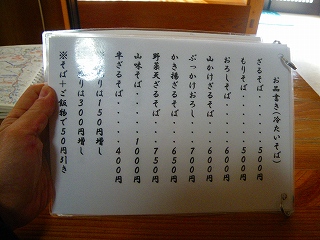 お品書き（冷たいそば）
ざるそば・・・・・500円
もりそば・・・・・500円
おろしそば・・・・600円
山かけざるそば・・600円
ぶっかけおろし・・700円
かき揚ざるそば・・650円
野菜天ざるそば・・750円
山味そば・・・・1000円
半ざるそば・・・・400円
りは150円増し
りは300円増し
※そば＋ご飯物で50円引き